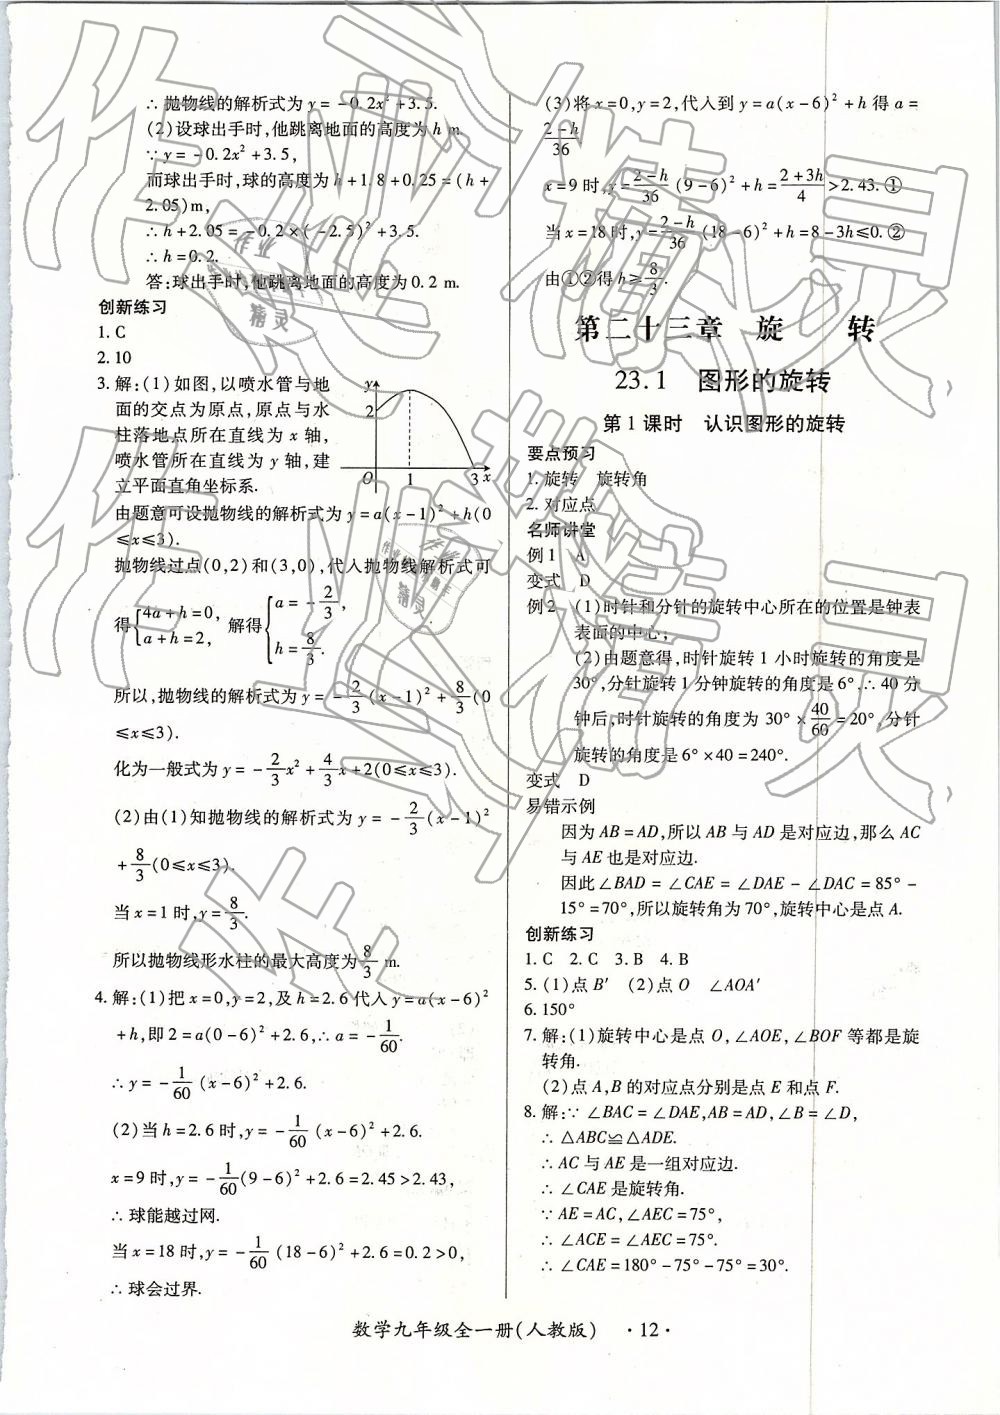 ∴抛物线的解析式为y=-0.2x²+3.5.
(2)设球出手时,他跳离地面的高度为h m.
∵y=-0.2x²+3.5,
而球出手时,球的高度为h+1.8+0.25=(h+
2.05)m,
∴h+2.05=-0.2×(-2.5)²+3.5.
∴h=0.2.
答:球出手时,他跳离地面的高度为0.2 m.
创新练习
1. C
2. 10
3. 解:(1)如图,以喷水管与地
面的交点为原点,原点与水
柱落地点所在直线为x轴,
喷水管所在直线为y轴,建
立平面直角坐标系.
y
2
O 1 3 x
由题意可设抛物线的解析式为y=a(x-1)²+h(0
≤x≤3).
抛物线过点(0,2)和(3,0),代入抛物线解析式可
得{4a+h=0, a+h=2, 解得{a=-2/3, h=8/3.
所以,抛物线的解析式为y=-2/3(x-1)²+8/3(0
≤x≤3).
化为一般式为y=-2/3x²+4/3x+2(0≤x≤3).
(2)由(1)知抛物线的解析式为y=-2/3(x-1)²
+8/3(0≤x≤3).
当x=1时,y=8/3.
所以抛物线形水柱的最大高度为8/3 m.
4. 解:(1)把x=0,y=2,及h=2.6代入y=a(x-6)²
+h,即2=a(0-6)²+2.6,∴a=-1/60.
∴y=-1/60(x-6)²+2.6.
(2)当h=2.6时,y=-1/60(x-6)²+2.6.
x=9时,y=-1/60(9-6)²+2.6=2.45>2.43,
∴球能越过网.
当x=18时,y=-1/60(18-6)²+2.6=0.2>0,
∴球会过界.
(3)将x=0,y=2,代入到y=a(x-6)²+h得a=
2-h/36
x=9时,y=2-h/36(9-6)²+h=2+3h/4>2.43.①
当x=18时,y=2-h/36(18-6)²+h=8-3h≤0.②
由①②得h≥8/3.
第二十三章 旋 转
23.1 图形的旋转
第1课时 认识图形的旋转
要点预习
1. 旋转 旋转角
2. 对应点
名师讲堂
例1 A
变式 D
例2 (1)时针和分针的旋转中心所在的位置是钟表
表面的中心;
(2)由题意得,时针旋转1小时旋转的角度是
30°,分针旋转1分钟旋转的角度是6°.∴40分
钟后,时针旋转的角度为30°×40/60=20°,分针
旋转的角度是6°×40=240°.
变式 D
易错示例
因为AB=AD,所以AB与AD是对应边,那么AC
与AE也是对应边.
因此∠BAD=∠CAE=∠DAE-∠DAC=85°-
15°=70°,所以旋转角为70°,旋转中心是点A.
创新练习
1. C 2. C 3. B 4. B
5. (1)点B′ (2)点O ∠AOA′
6. 150°
7. 解:(1)旋转中心是点O,∠AOE,∠BOF等都是旋
转角.
(2)点A,B的对应点分别是点E和点F.
8. 解:∵∠BAC=∠DAE,AB=AD,∠B=∠D,
∴△ABC≌△ADE.
∴AC与AE是一组对应边.
∴∠CAE是旋转角.
∵AE=AC,∠AEC=75°,
∴∠ACE=∠AEC=75°.
∴∠CAE=180°-75°-75°=30°.
数学九年级全一册(人教版) ·12·